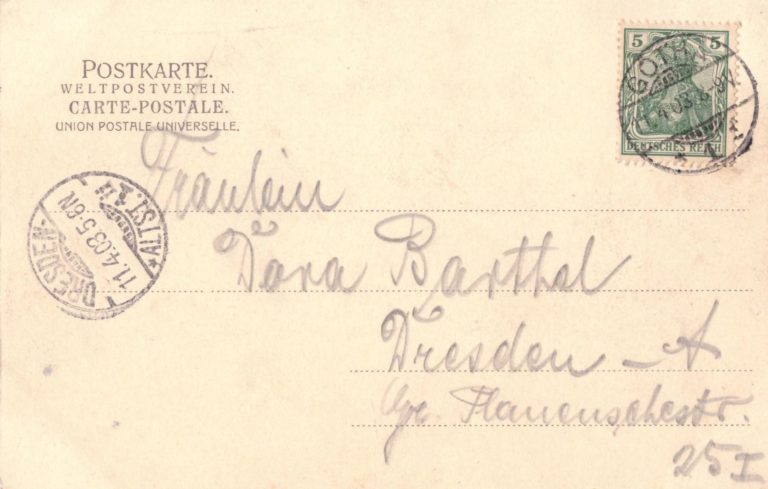 POSTKARTE.
WELTPOSTVEREIN.
CARTE-POSTALE.
UNION POSTALE UNIVERSELLE.
5 5
DEUTSCHES REICH
GOTHA
11.4.03. 8-9V.
DRESDEN-ALTST.
11.4.03.5-6N
Fräulein
Dora Barthel
Dresden – A
Gr. Plauenschestr.
25 I